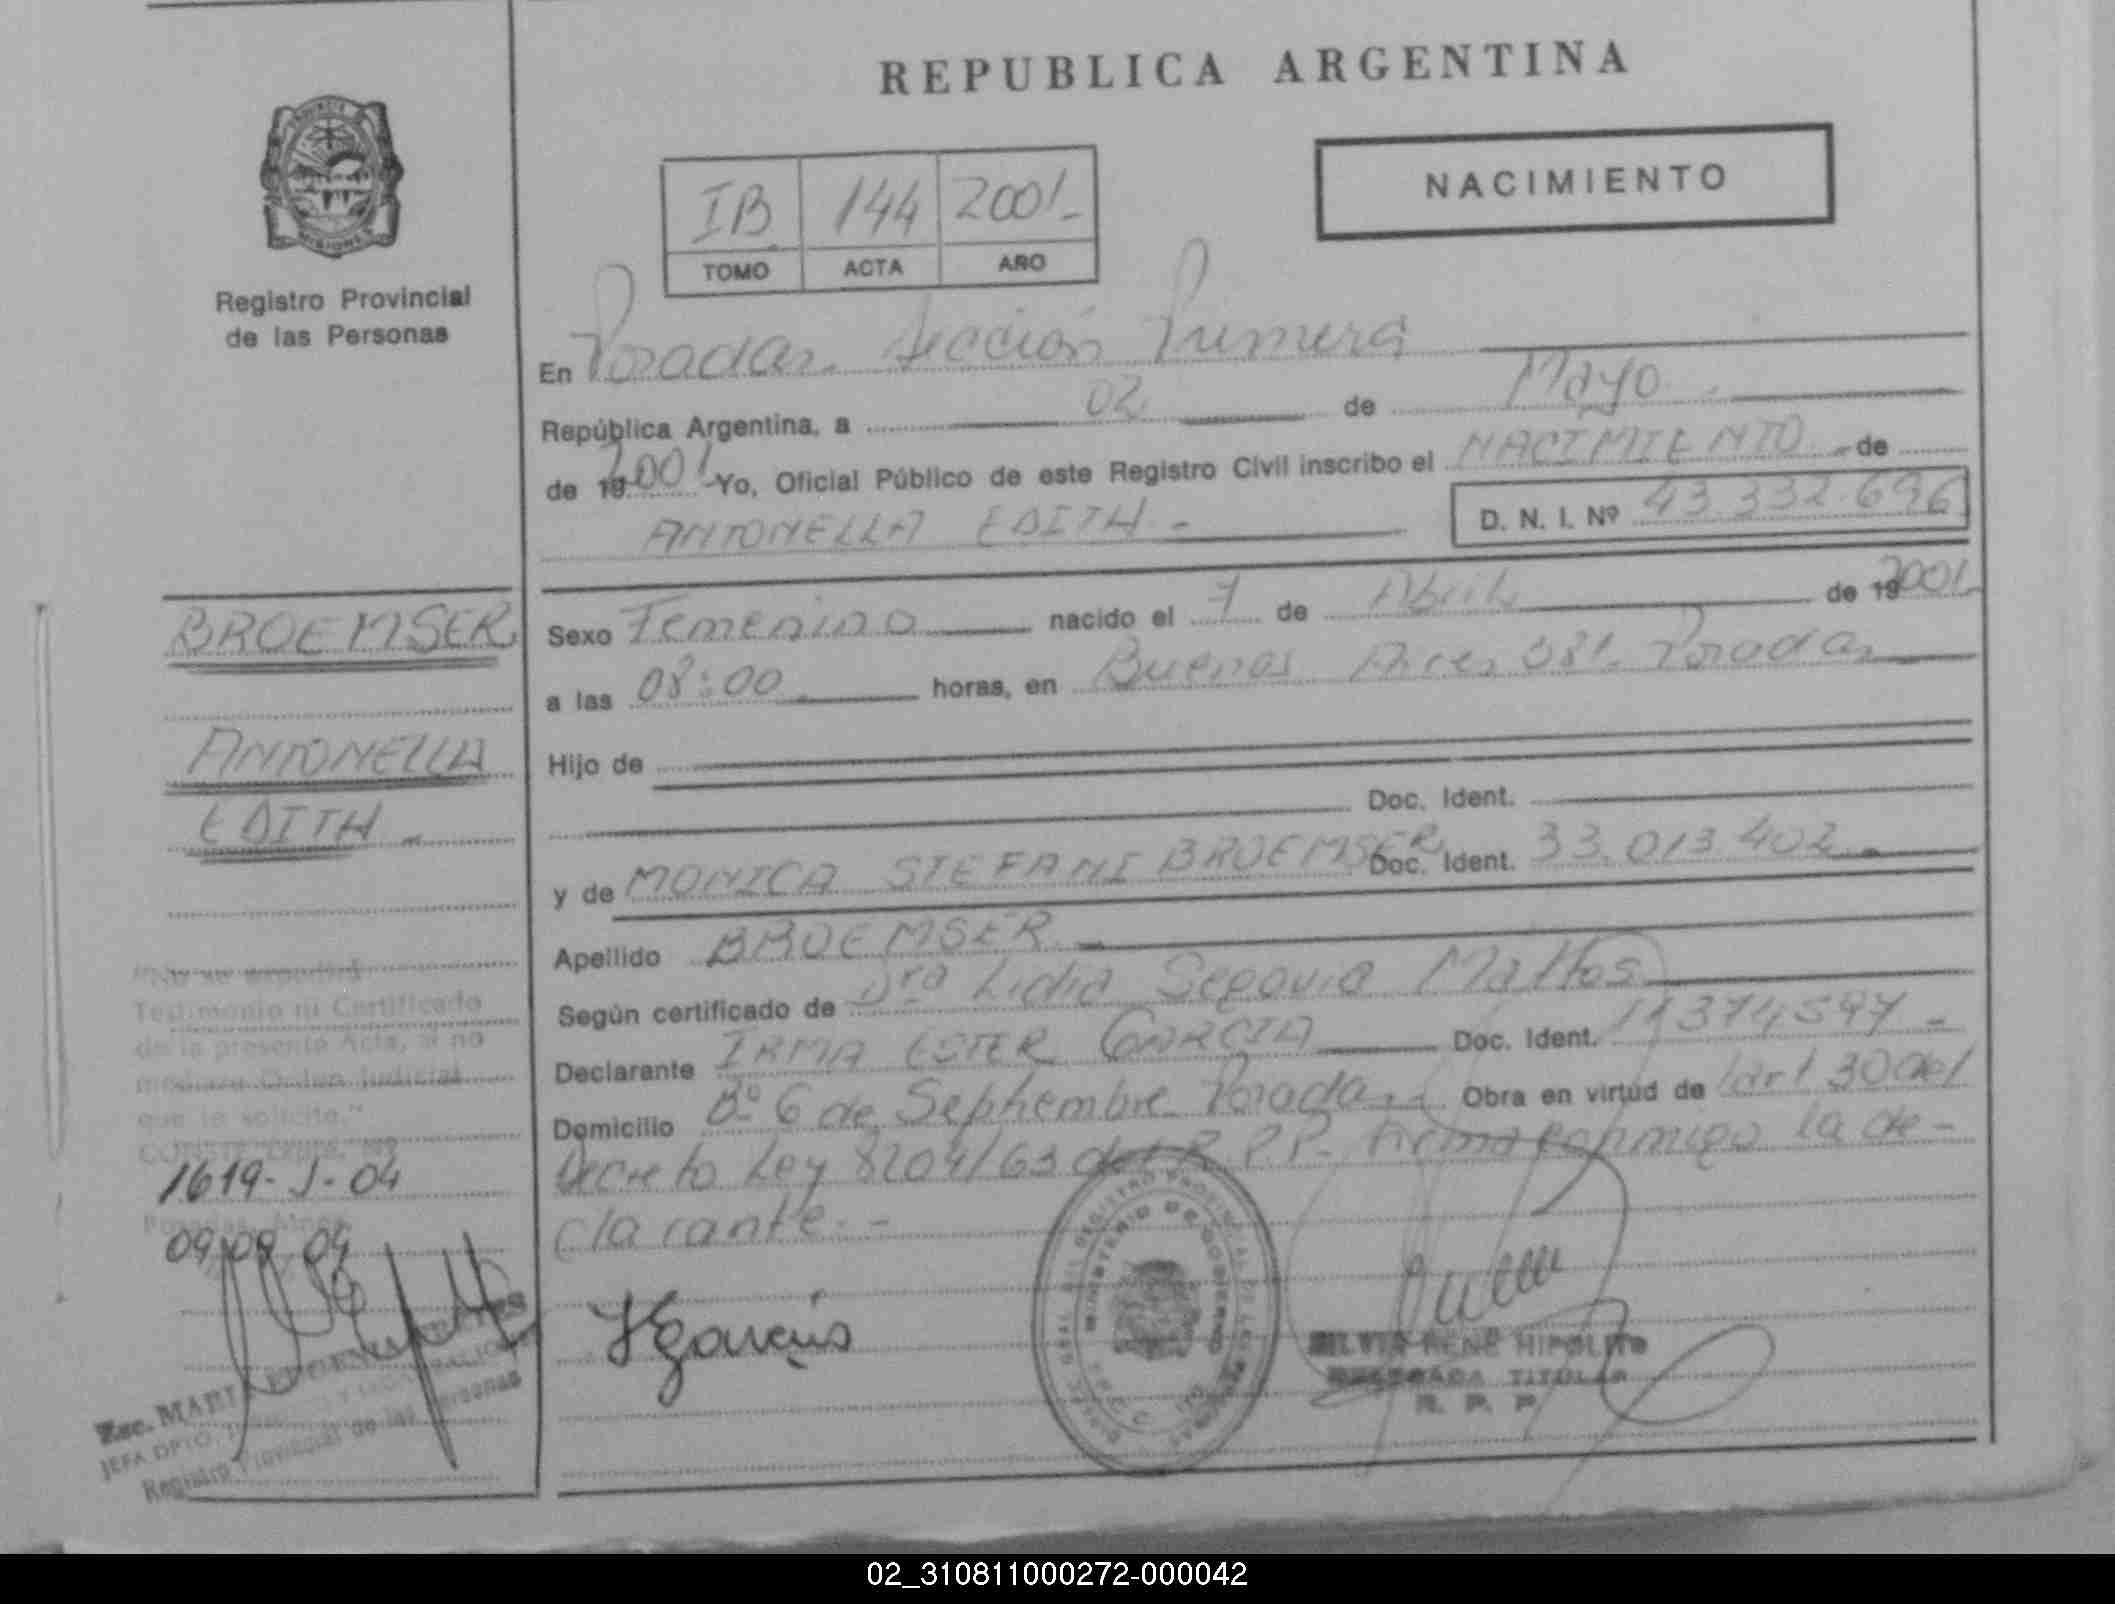 REPUBLICA ARGENTINA
NACIMIENTO
IB 144 2001-
TOMO ACTA AÑO
MISIONES
Registro Provincial
de las Personas
En Posadas. Sección Primera
República Argentina, a 02 de Mayo
de 19 2001 Yo, Oficial Público de este Registro Civil inscribo el NACIMIENTO de
ANTONELLA EDITH - D. N. I. Nº 43.332.696
BROEMSER
ANTONELLA
EDITH -
Sexo Femenino nacido el 7 de Abril de 19 2001
a las 08:00 horas, en Buenos Aires 381. Posadas
Hijo de
Doc. Ident.
y de MONICA STEFANI BROEMSER Doc. Ident. 33.013.402
Apellido BROEMSER
Según certificado de Dra Lidia Segovia Mattos
Declarante IRMA ESTER GARCIA Doc. Ident. 11374597 -
Domicilio Bº 6 de Septiembre Posadas Obra en virtud de l art 30 del
Decreto Ley 8204/63 del R.P.P. Firma conmigo la de-
clarante. -
"No se expedirá
Testimonio ni Certificado
de la presente Acta, si no
mediare Orden Judicial
que lo solicite."
CONSTE Expte. Nº
1619-J-04
Posadas, Mnes.
09 09 04
HGarcía
SILVIA RENE HIPOLITO
DELEGADA TITULAR
R. P. P.
Esc. MARIA
JEFA DPTO.
Registro Provincial de las Personas
MINISTERIO DE GOBIERNO
02_310811000272-000042